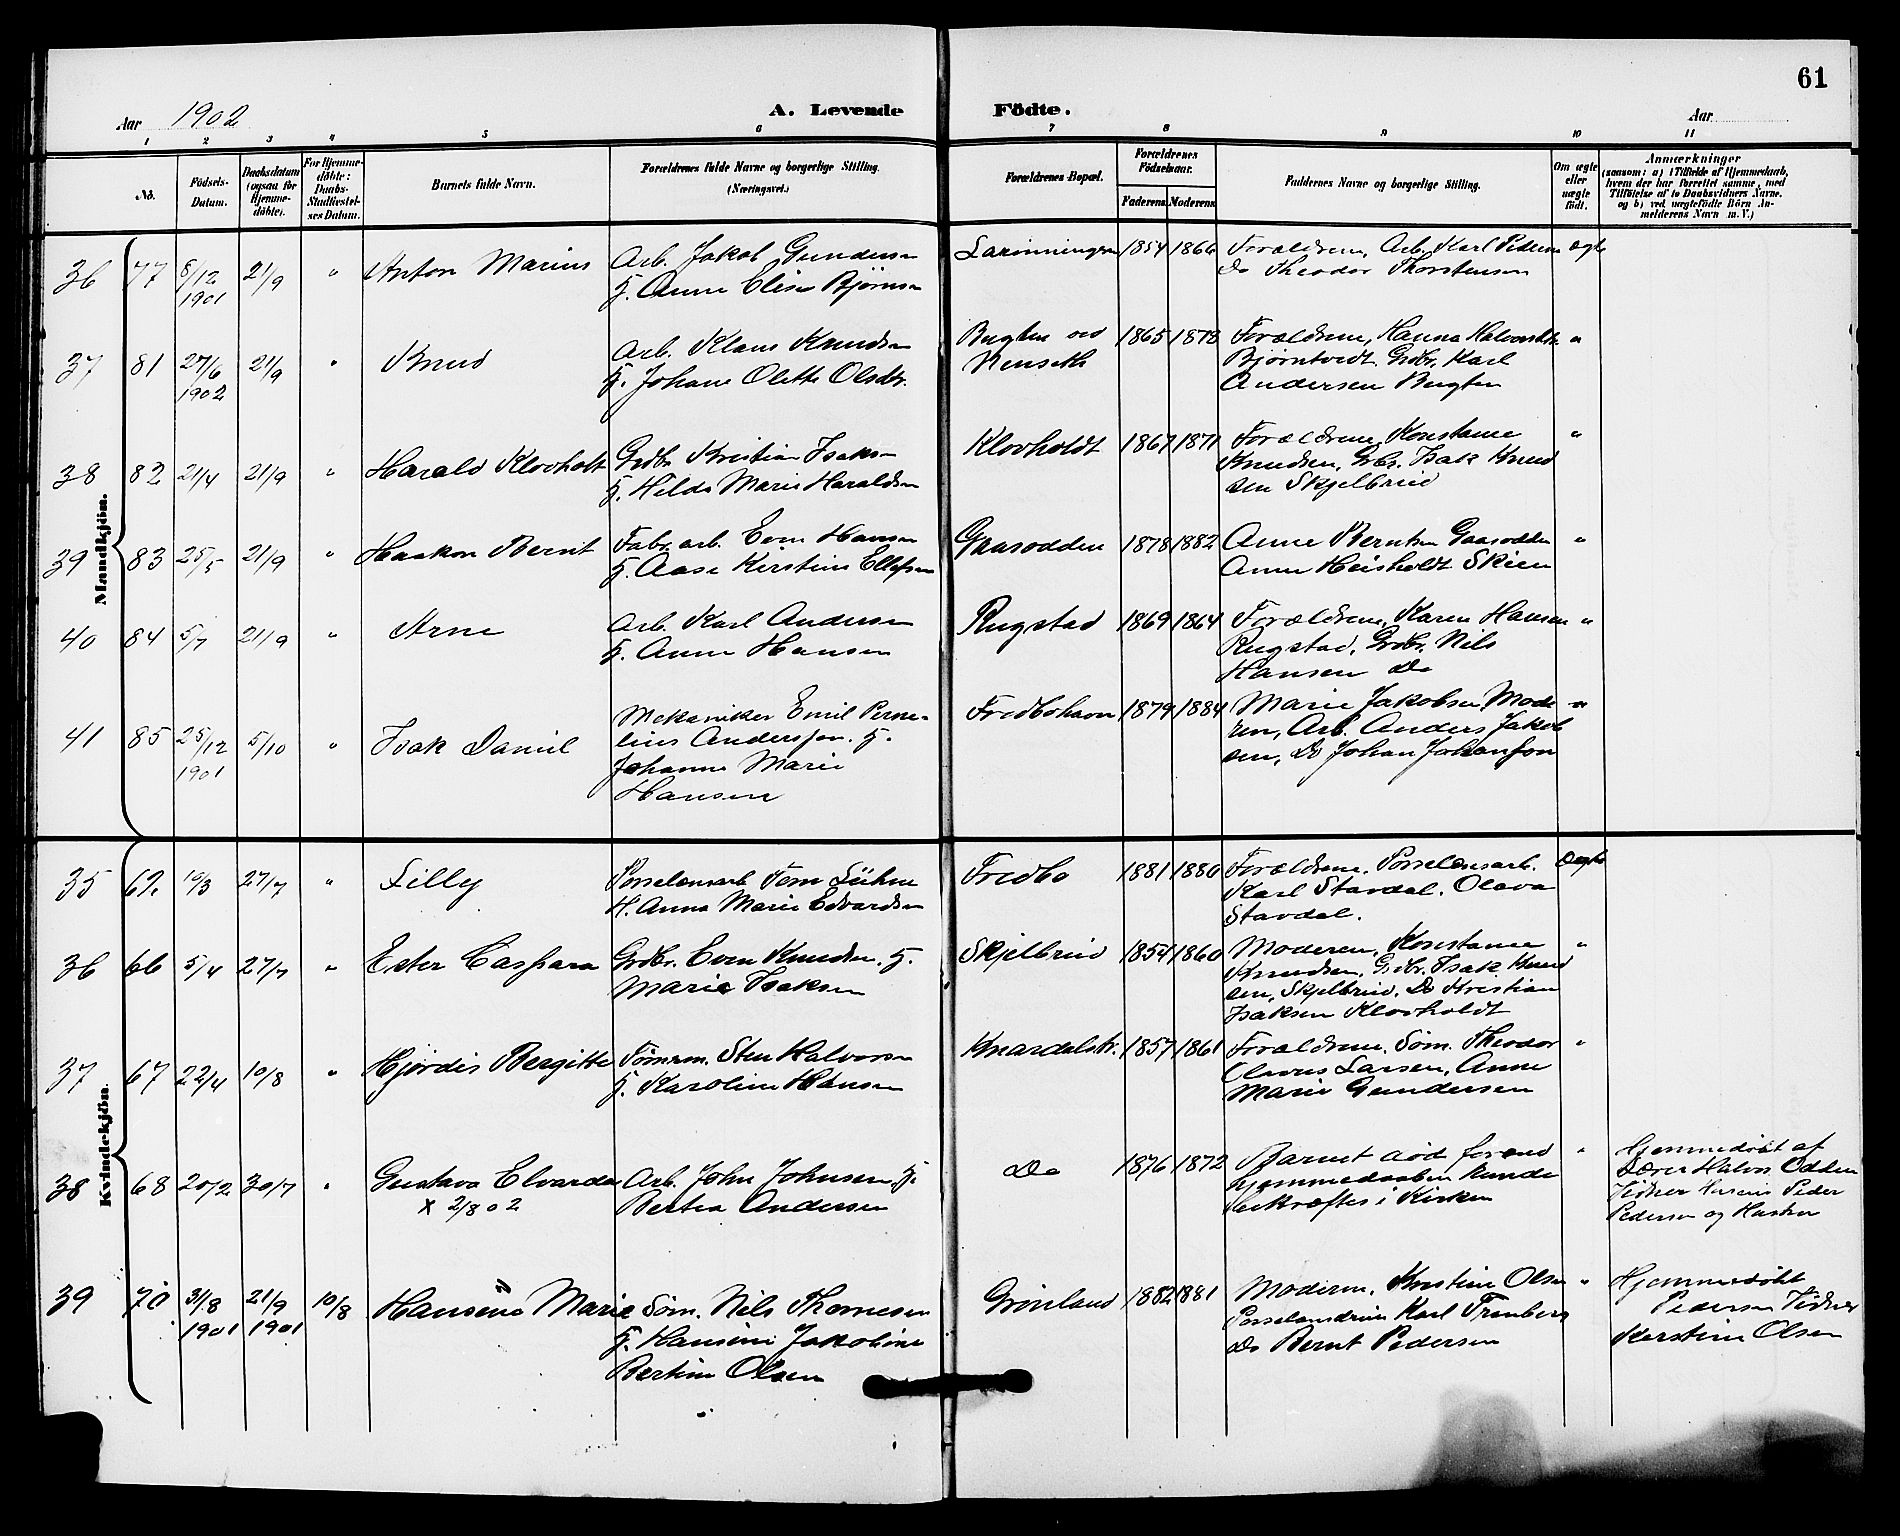 61
Aar 1902
A. Levende Födte.
Aar
1 2 3 4 5 6 7 8 9 10 11
No.
Födsels-Datum.
Daabsdatum (ogsaa for Hjemme-döbte).
For Hjemme-döbte: Daabs-Stadfæstel-ses Datum.
Barnets fulde Navn.
Forældrenes fulde Navne og borgerlige Stilling.
(Næringsvei.)
Forældrenes Bopæl.
Forældrenes Födselsaar.
Faderens Moderens
Faddernes Navne og borgerlige Stilling.
Om ægte eller uægte födt.
Anmærkninger
(saasom: a) i Tilfælde af Hjemmedaab,
hvem der har forrettet samme, med
Tilföielse af to Daabsvidners Navne.
og b) ved uægtefödte Börn An-
melderens Navn m. V.)
Mandkjön.
36 77 8/12 1901 21/9 " Anton Marius
Arb. Jakob Gundersen
H. Anne Elise Bjørnsen
1854 1866
Forældrene, Arb. Karl Pedersen
Do Theodor Thorstensen
Ægte
37 81 27/6 1902 21/9 " Knud
Arb. Klaus Knudsen
H. Johane Olette Olsdtr.
Bugten ved
Nenseth
1865 1878
Forældrene, Hanna
Bjørntvedt. Grdbr. Karl
Andersen Bugten
"
38 82 21/4 21/9 " Harald Klovholt
Grdbr Kristian Isaksen
H. Hilda Marie Haraldsen
Klovholdt 1867 1871
Forældrene, Konstanse
Knudsen, Grbr. Isak Knud
sen Skjelbred
"
39 83 25/5 21/9 " Haakon Bernt
Fabr. arb. Even Hansen
H. Aase Kirstine Ellefsen
Gaasodden 1878 1882
Anne Berntsen Gaasodden
Anne Heisholdt Skien
"
40 84 5/7 21/9 " Arne
Arb. Karl Andersen
H. Anne Hansen
Rugstad 1869 1864
Forældrene, Karen Hansen
Rugstad, Grdbr. Nils
Hansen Do
"
41 85 25/12 1901 5/10 " Isak Daniel
Mekaniker Emil Perne-
lius Andersson. H.
Johanne Marie
Hansen
Fredbohavn 1879 1884
Marie Jakobsen, Mode
ren, Arb. Anders Jakob
sen, Do Johan Johansson
"
Kvindekjön.
35 10/3 27/7 " Lilly
Porselænsarb
H. Anna Marie Edvardsen
Fredbo 1881 1880
Forældrene. Porselænsarb.
Karl Stavdal. Olava
Stavdal.
Ægte
36 66 5/4 27/7 " Ester Caspara
Grdbr. Even Knudsen. H.
Marie Isaksen
Skjelbred 1854 1860
Moderen, Konstanse
Knudsen. Grdbr. Isak Knud
sen, Skjelbred. Do Kristian
Isaksen Klovholdt
"
37 67 22/4 10/8 " Hjördis Bergitte
Tømrm. Sten Halvorsen
H. Karoline Hansen
Knardalstr. 1857 1861
Forældrene. Søm. Theodor
Olavus Larsen, Anne
Marie Gundersen
"
38 68 20/2 30/7 " Gustava Elvarda
x 2/8 02
Arb. John Johnsen H.
Bertea Andersen
Do 1876 1872
Barnet död forend
hjemmedaaben kunde
bekræftes i Kirken
"
Hjemmedöbt af
Lærer Halvor
Vidner Husein Peder
Pedersen og Hustru
39 70 31/8 1901 21/9 1901 10/8 Hansine Marie
Søm. Nils Thomesen
H. Hansine Jakobine
Bertine Olsen
Grönland 1882 1881
Moderen, Kristine Olsen
Porselænsdreier Karl
Do Bernt Pedersen
"
Hjemmedöbt
Pedersen Vidner
Kerstine Olsen